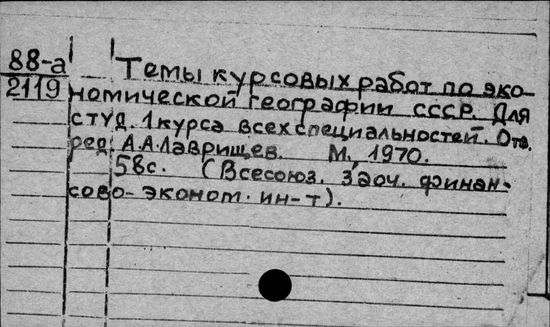 88-а
2119
Темы курсовых работ по эко-
номической географии СССР. Для
студ. 1 курса всех специальностей. Отв.
ред. А.А.Лаврищев. М., 1970.
58с. (Всесоюз. Заоч. финан-
сово-эконом. ин-т).